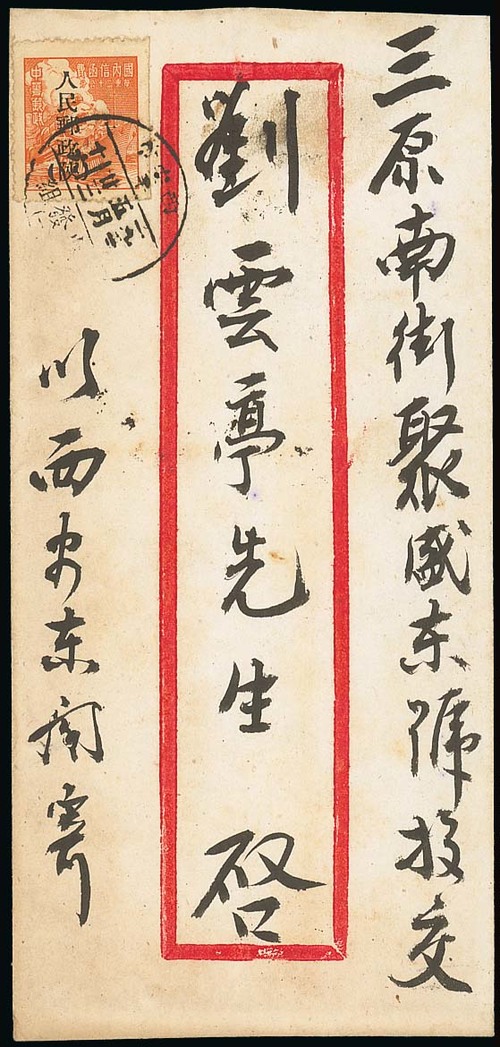 三原南街聚盛东號投交
劉雲亭先生 啓
西安东
寄
國內信函費
中華郵政
人民郵政
五月